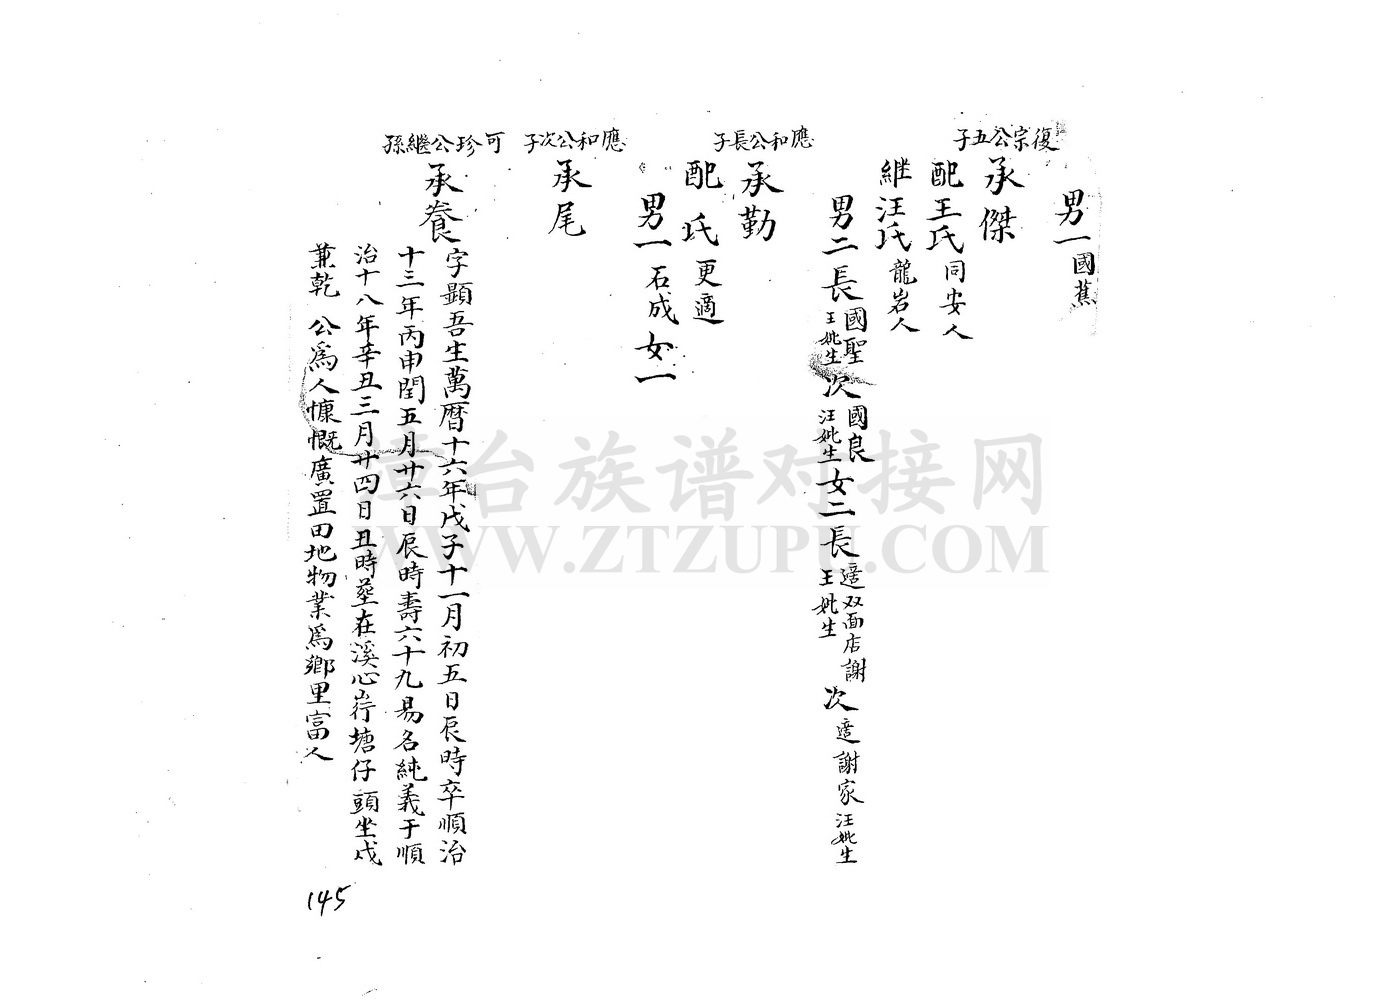 男一國蕉
復宗公五子
承傑
配王氏同安人
継汪氏龍岩人
男二長國聖王妣生次國良汪妣生女二長適双面店謝王妣生次適謝家汪妣生
應和公長子
承勤
配 氏更適
男一石成女一
應和公次子
承尾
可珍公繼孫
承養
字顯吾生萬曆十六年戊子十一月初五日辰時卒順治
十三年丙申閏五月廿六日辰時壽六十九易名純義于順
治十八年辛丑三月廿四日丑時塟在溪心塘仔頭坐戌
兼乾 公爲人慷慨廣置田地物業爲鄉里富人
145
漳台族谱对接网
WWW.ZTZUPU.COM